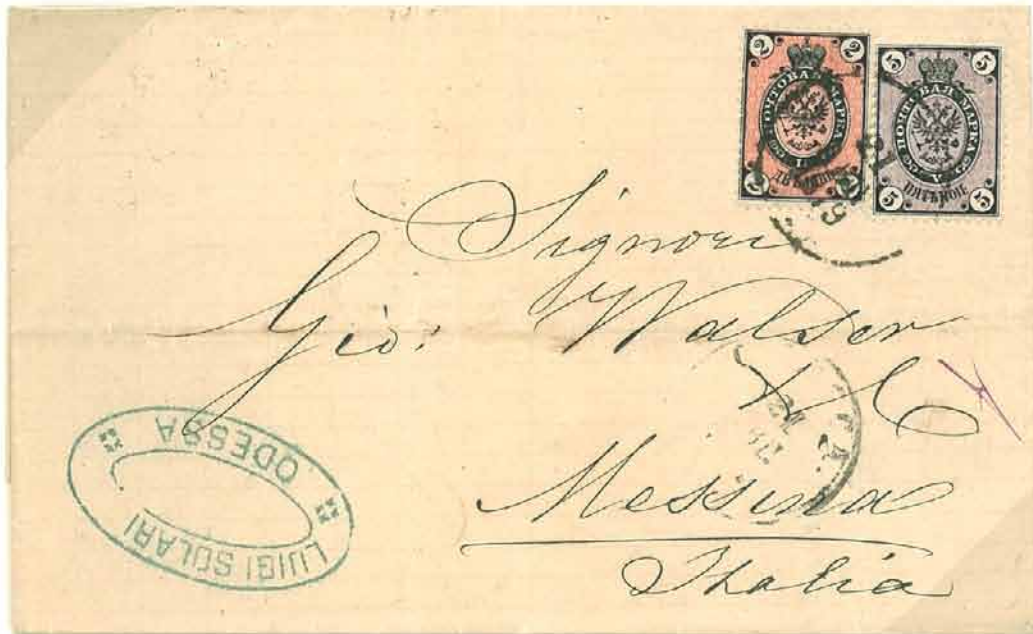 2 2
ПОЧТОВАЯ МАРКА
ДВѢ КОП
2 2
5 5
ПОЧТОВАЯ МАРКА
ПЯТЬ КОП
5 5
Signori
Gio: Walser
& C
Messina
Italia
LUIGI SOLARI
ODESSA